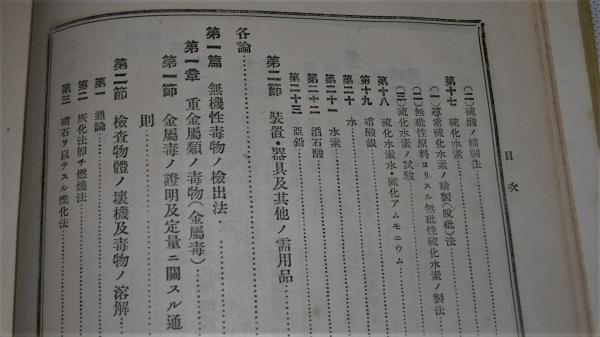 目次
(二)硫酸ノ精製法
第十七 硫化水素
(一)尋常硫化水素ノ精製(脫砒)法
(二)無砒性原料ヨリスル無砒性硫化水素ノ製法
(三)硫化水素ノ試驗
第十八 硫化水素水・硫化アムモニウム
第十九 硝酸銀
第二十 水
第二十一 水素
第二十二 酒石酸
第二十三 亞鉛
第二節 裝置・器具及其他ノ需用品
各論
第一篇 無機性毒物ノ檢出法
第一章 重金屬類ノ毒物(金屬毒)
第一節 金屬毒ノ證明及定量ニ關スル通
則
第二節 檢査物體ノ壞機及毒物ノ溶解
第一 通論
第二 灰化法卽チ燃燒法
第三 硝石ヲ以テスル酸化法